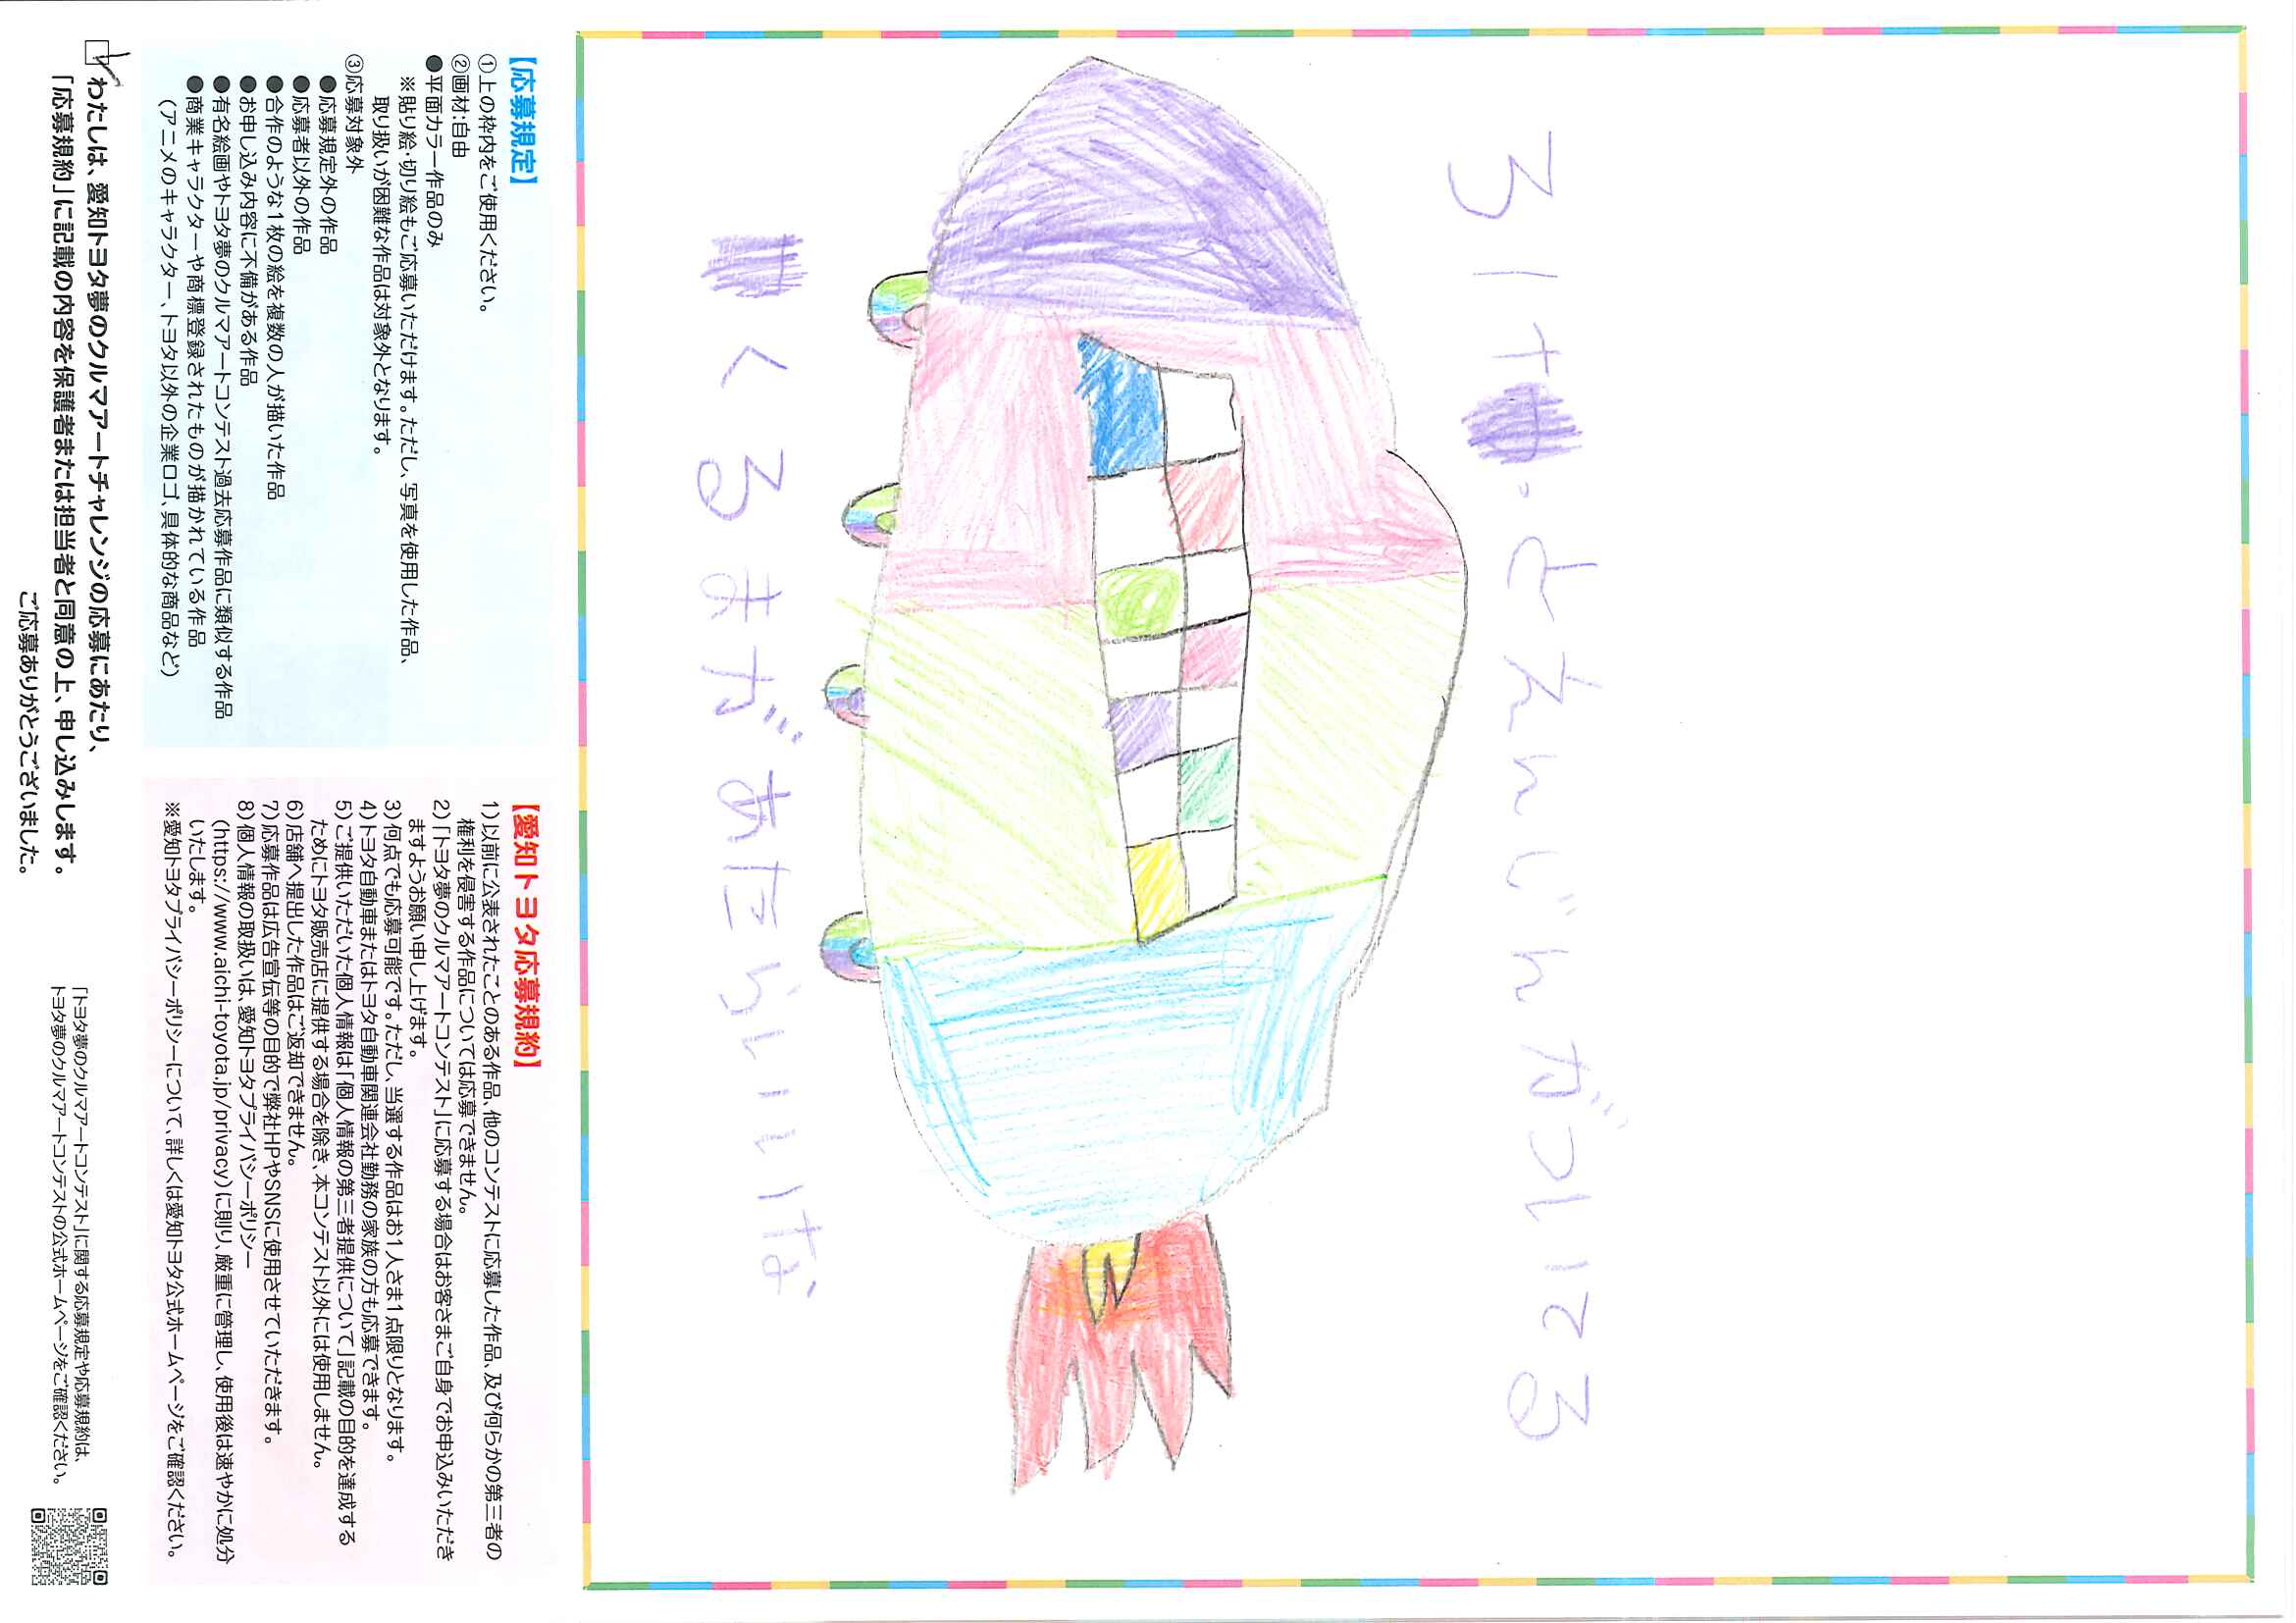 ろけっとえんじんがついてる
くるまがあたらいいな
【応募規定】
①上の枠内をご使用ください。
②画材:自由
●平面カラー作品のみ
※貼り絵・切り絵もご応募いただけます。ただし、写真を使用した作品、
取り扱いが困難な作品は対象外となります。
③応募対象外
●応募規定外の作品
●応募者以外の作品
●合作のような1枚の絵を複数の人が描いた作品
●お申し込み内容に不備がある作品
●有名絵画やトヨタ夢のクルマアートコンテスト過去応募作品に類似する作品
●商業キャラクターや商標登録されたものが描かれている作品
(アニメのキャラクター、トヨタ以外の企業ロゴ、具体的な商品など)
【愛知トヨタ応募規約】
1)以前に公表されたことのある作品、他のコンテストに応募した作品、及び何らかの第三者の
権利を侵害する作品については応募できません。
2)「トヨタ夢のクルマアートコンテスト」に応募する場合はお客さまご自身でお申込みいただき
ますようお願い申し上げます。
3)何点でも応募可能です。ただし、当選する作品はお1人さま1点限りとなります。
4)トヨタ自動車またはトヨタ自動車関連会社勤務の家族の方も応募できます。
5)ご提供いただいた個人情報は「個人情報の第三者提供について」記載の目的を達成する
ためにトヨタ販売店に提供する場合を除き、本コンテスト以外には使用しません。
6)店舗へ提出した作品はご返却できません。
7)応募作品は広告宣伝等の目的で弊社HPやSNSに使用させていただきます。
8)個人情報の取扱いは、愛知トヨタプライバシーポリシー
(https://www.aichi-toyota.jp/privacy)に則り、厳重に管理し、使用後は速やかに処分
いたします。
※愛知トヨタプライバシーポリシーについて、詳しくは愛知トヨタ公式ホームページをご確認ください。
わたしは、愛知トヨタ夢のクルマアートチャレンジの応募にあたり、
「応募規約」に記載の内容を保護者または担当者と同意の上、申し込みします。
ご応募ありがとうございました。
「トヨタ夢のクルマアートコンテスト」に関する応募規定や応募規約は、
トヨタ夢のクルマアートコンテストの公式ホームページをご確認ください。